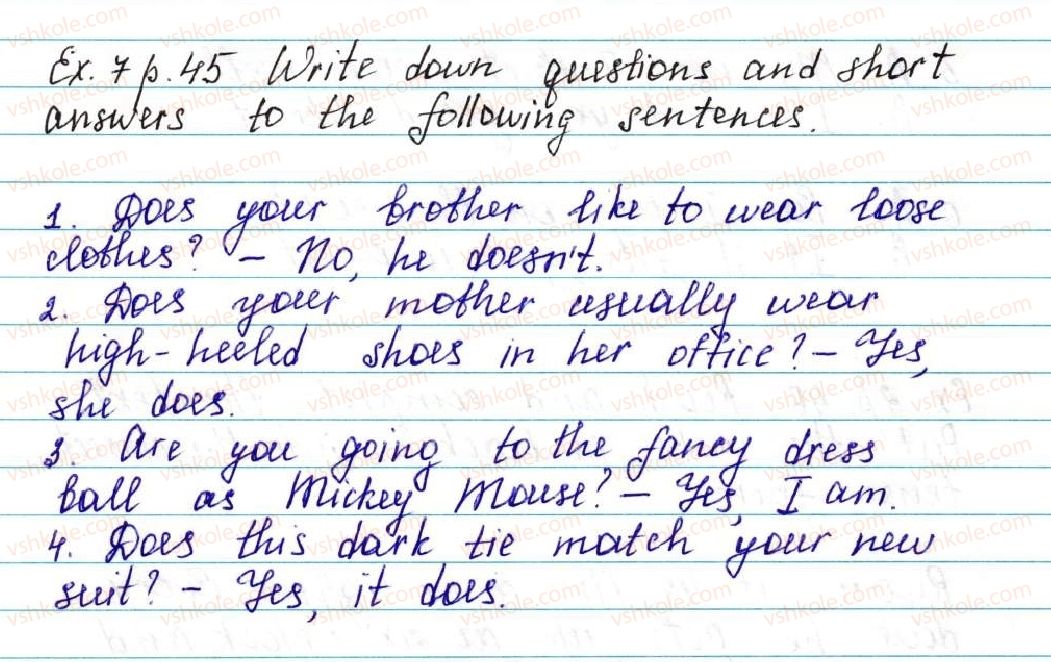 Ex. 7 p. 45 Write down questions and short
answers to the following sentences.
1. Does your brother like to wear loose
clothes? – No, he doesn't.
2. Does your mother usually wear
high-heeled shoes in her office? – Yes,
she does.
3. Are you going to the fancy dress
ball as Mickey Mouse? – Yes, I am.
4. Does this dark tie match your new
suit? – Yes, it does.